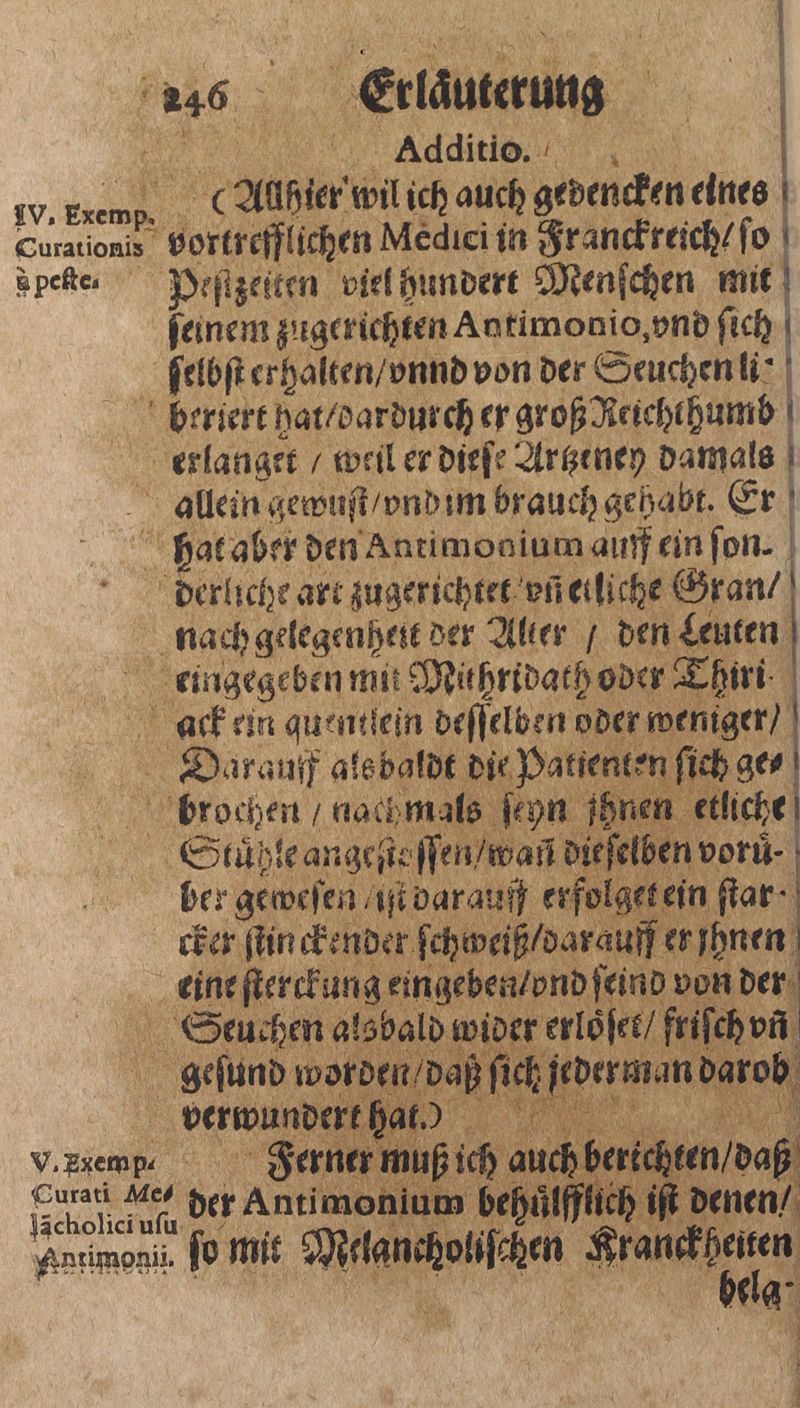 246 Erläuterung
Additio.
IV. Exemp.
Curationis
à peste.
(Allhier wil ich auch gedencken eines
vortrefflichen Medici in Franckreich/ so
Pestzeiten viel hundert Menschen mit
seinem zugerichten Antimonio, vnd sich
selbst erhalten/ vnnd von der Seuchen li-
beriert hat/ dardurch er groß Reichthumb
erlanget / weil er diese Artzeney damals
allein gewust/ vnd im brauch gehabt. Er
hat aber den Antimonium auff ein son-
derliche art zugerichtet vñ etliche Gran/
nach gelegenheit der Alter / den Leuten
eingegeben mit Mithridath oder Thiri-
ack ein quentlein desselben oder weniger/
Darauff alsbaldt die Patienten sich ge-
brochen / nachmals seyn jhnen etliche
Stuͤhle angestossen/ wañ dieselben voruͤ-
ber gewesen / ist darauff erfolget ein star-
cker stinckender schweiß/ darauff er jhnen
eine sterckung eingeben/ vnd seind von der
Seuchen alsbald wider erloͤset/ frisch vñ
gesund worden/ daß sich jederman darob
verwundert hat.)
V. Exemp.
Curati Me-
lācholici usu
Antimonii.
Ferner muß ich auch berichten/ daß
der Antimonium behuͤlfflich ist denen/
so mit Melancholischen Kranckheiten
bela-